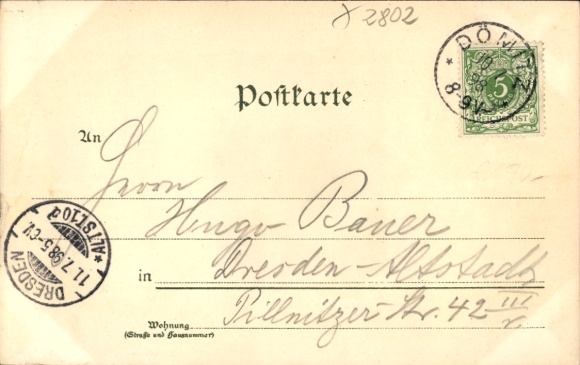 × 2802
* DÖMITZ
10 7 98
8-9V.
5
REICHSPOST
Postkarte
An
Herrn
Hugo Bauer
in Dresden-Altstadt
Pillnitzer-Str. 42 III r.
Wohnung
(Straße und Hausnummer)
DRESDEN
11.7.98.5-6V.
*ALTST.10